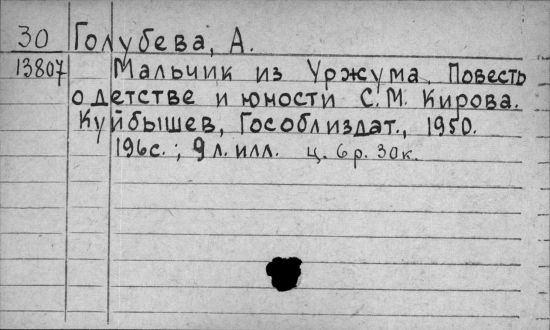 30 Голубева, А.
13807 Мальчик из Уржума. Повесть
о детстве и юности С.М. Кирова.
Куйбышев, Гособлиздат., 1950.
196с.; 9 л. илл. ц. 6р. 30к.